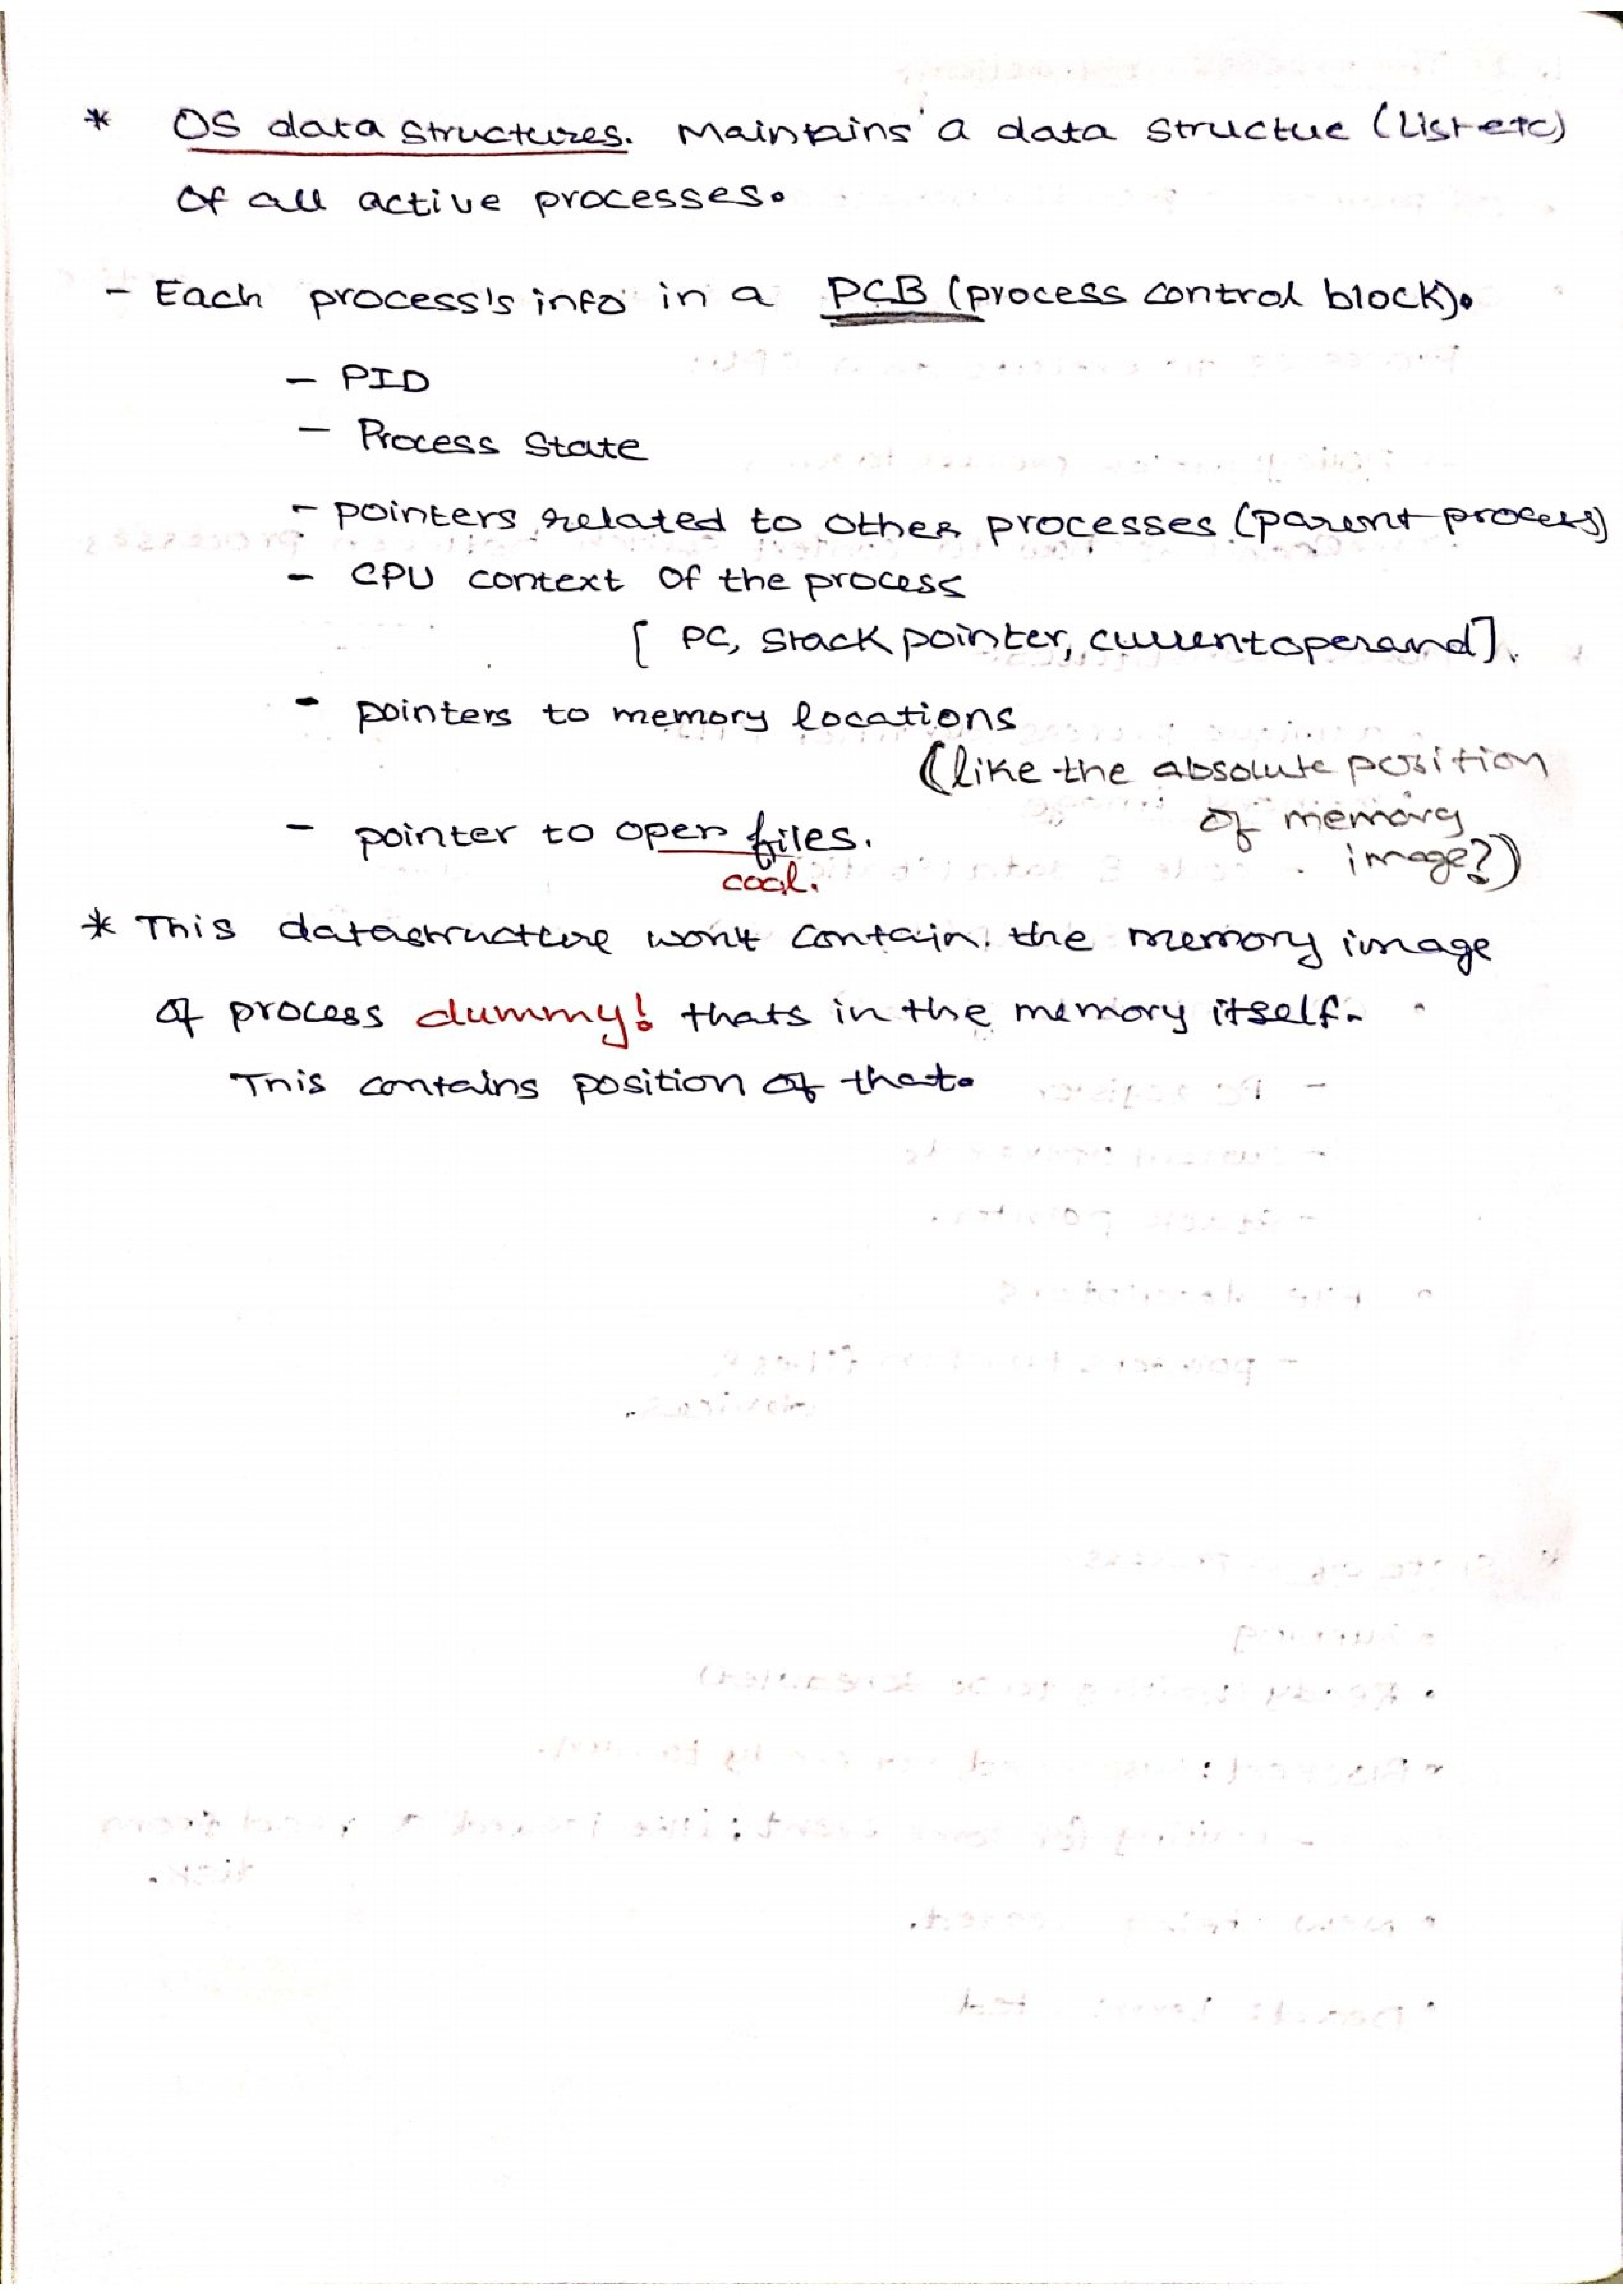 * OS data structures. Maintains a data structue (List etc)
of all active processes.
- Each process's info in a PCB (process control block).
- PID
- Process State
- pointers related to other processes (parent process)
- CPU context of the process
[ PC, stack pointer, current operand].
- pointers to memory locations
(like the absolute position
of memory
image?)
- pointer to open files.
cool.
* This datastructure won't contain the memory image
of process dummy! thats in the memory itself.
This contains position of that.